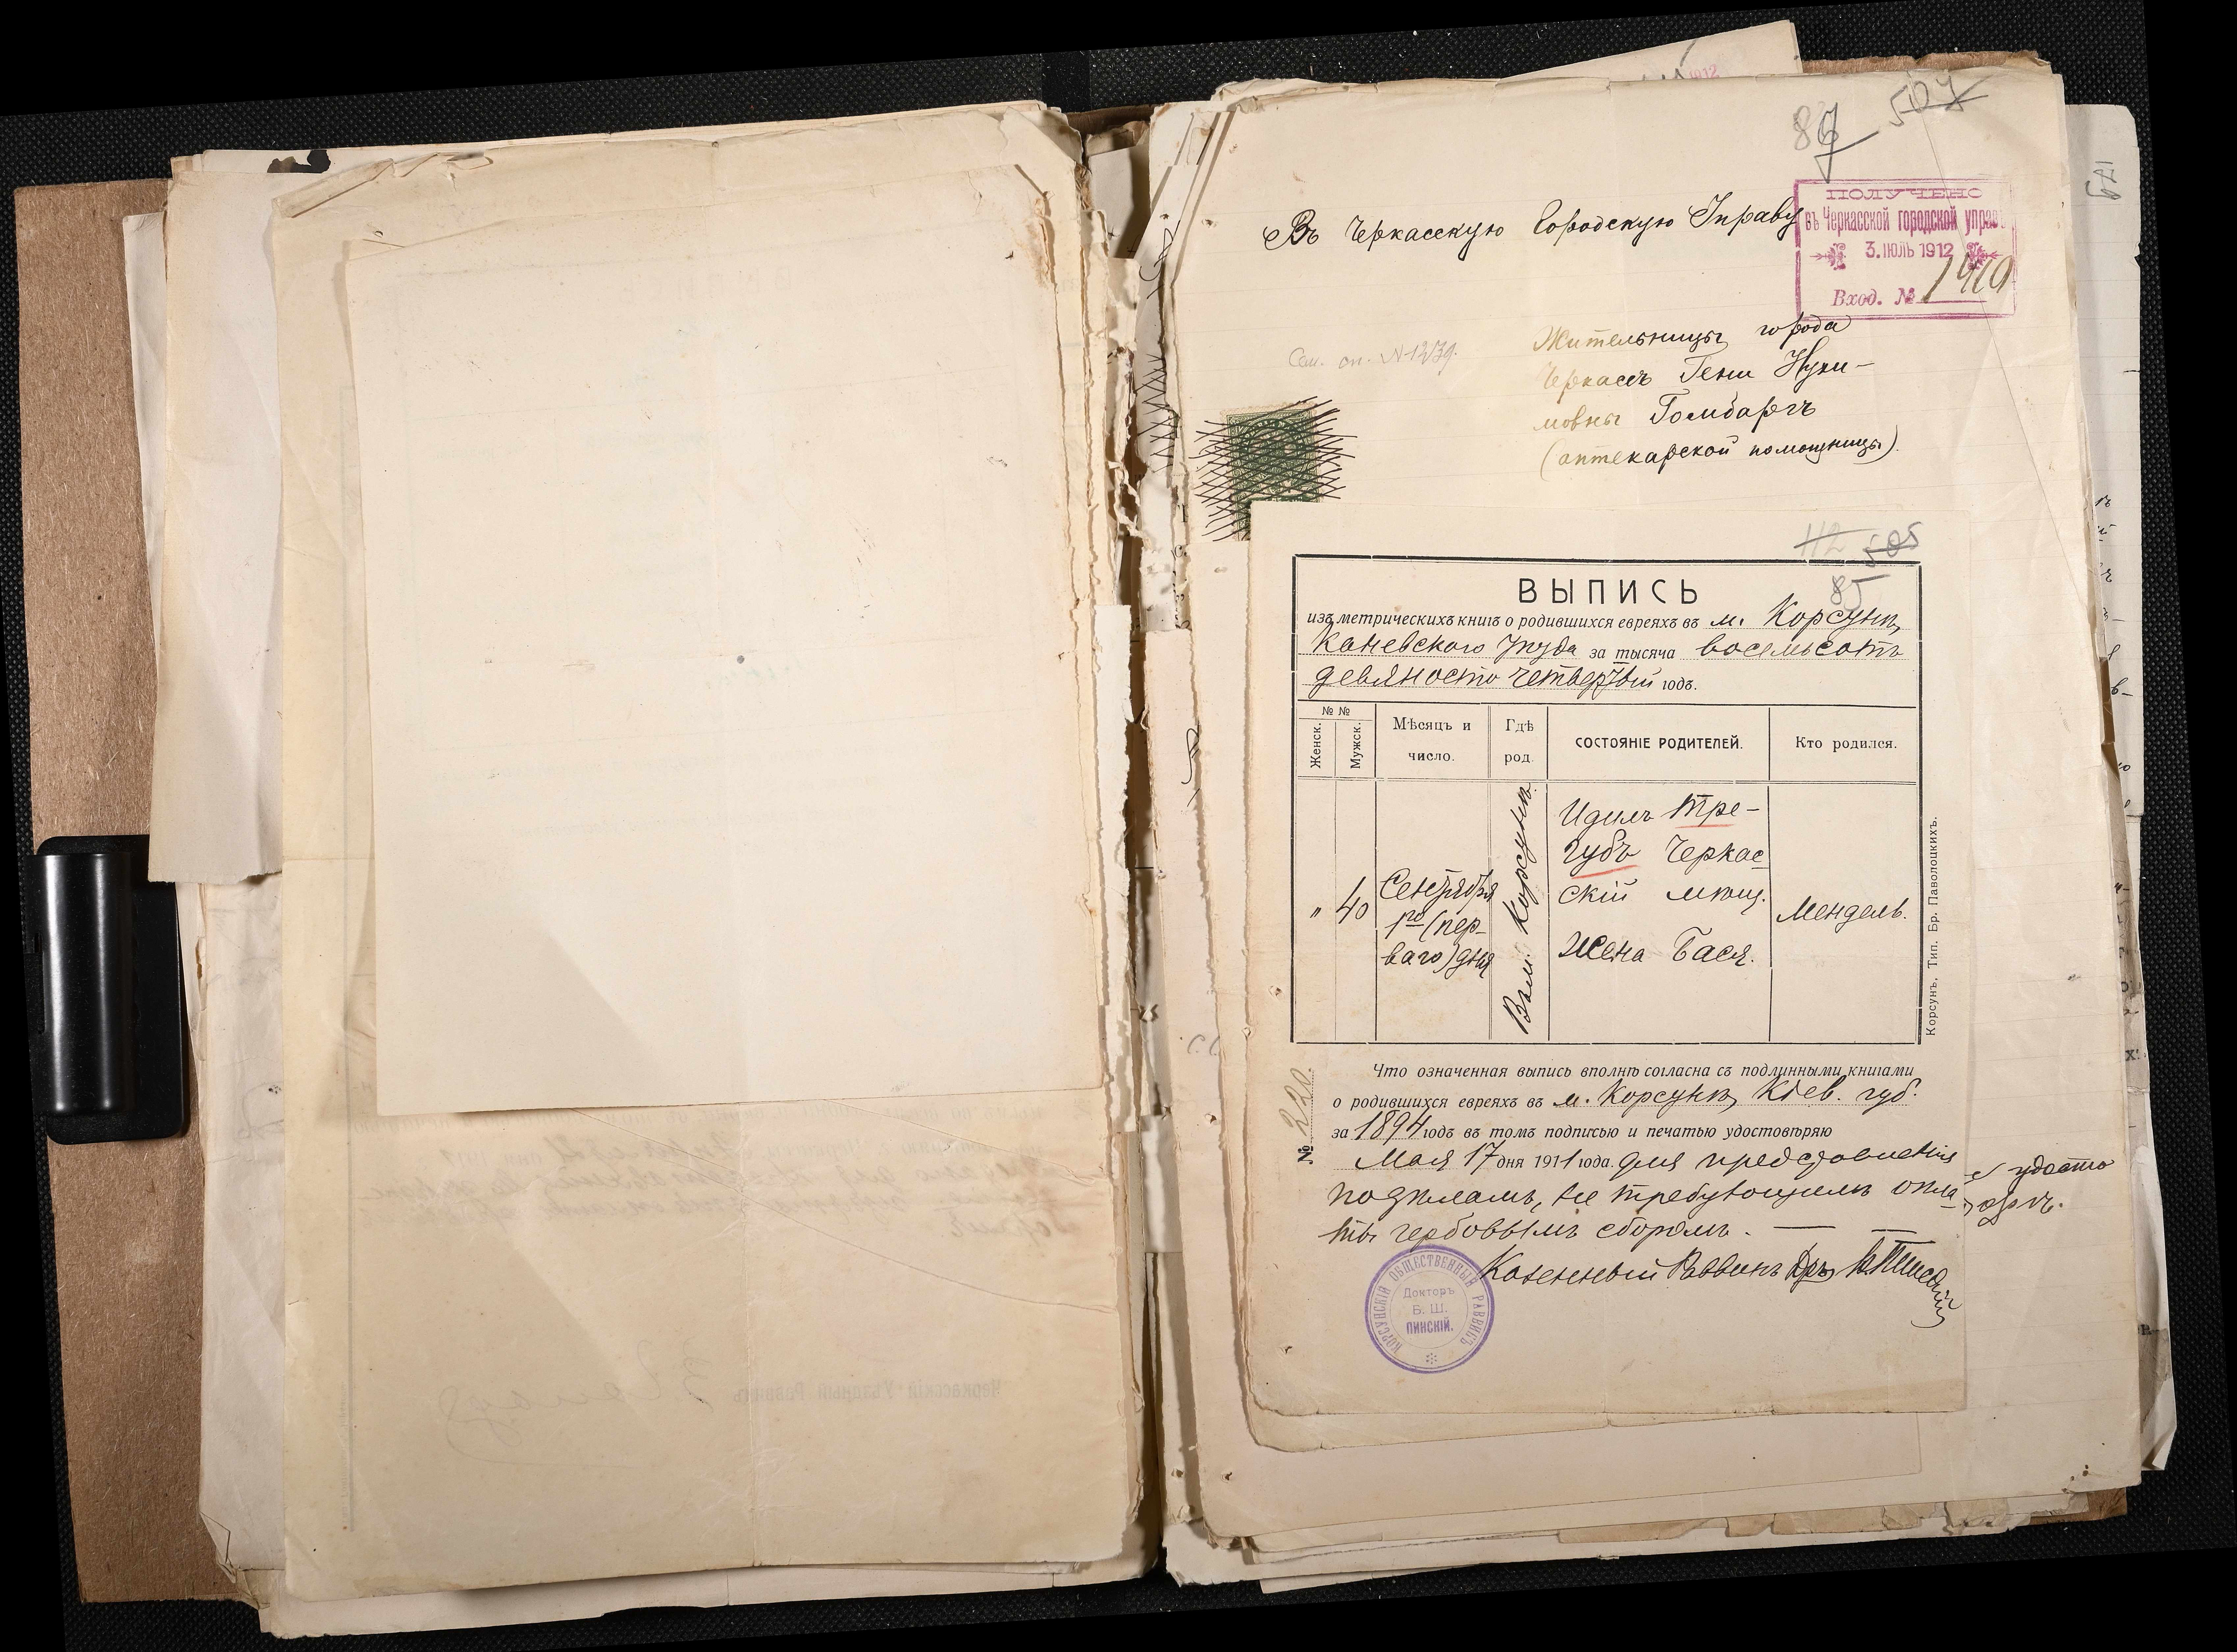 507
87
Въ Черкасскую Городскую Управу
ПОЛУЧЕНО
въ Черкасской городской управ.
3. ІЮЛЬ 1912
Вход. №
Жительницы города
Сем. оп. № 1279.
Черкассъ Гени Нухи-
мовны Гомбаргъ
(аптекарской помощницы).
112 505
85
ВЫПИСЬ
изъ метрическихъ книгъ о родившихся евреяхъ въ м. Корсунѣ,
Каневскаго уѣзда за тысяча восемьсотъ
девяносто четвертый годъ.
№ №
Женск.
Мужск.
Мѣсяцъ и число.
Гдѣ род.
СОСТОЯНІЕ РОДИТЕЛЕЙ.
Кто родился.
"
40
Сентября
1го (пер-
ваго) дня
Въ м. Корсунѣ.
Идиль Тре-
губъ Черкас
скій мѣщ.
Жена Бася.
Мендель.
Корсунъ, Тип. Бр. Паволоцкихъ.
Что означенная выпись вполнѣ согласна съ подлинными книгами
о родившихся евреяхъ въ м. Корсунѣ, Кіев. губ.
за 1894 годъ въ томъ подписью и печатью удостовѣряю
№ 220.
Мая 17 дня 1911 года. для представленія
подѣламъ, не требующимъ опла-
ты гербовымъ сборомъ.
Казенный Раввинъ Дръ Б. Пинскій
КОРСУНСКІЙ ОБЩЕСТВЕННЫЙ РАВВИНЪ
Докторъ
Б. Ш.
ПИНСКІЙ.
Черкасскій Уѣздный Равинъ